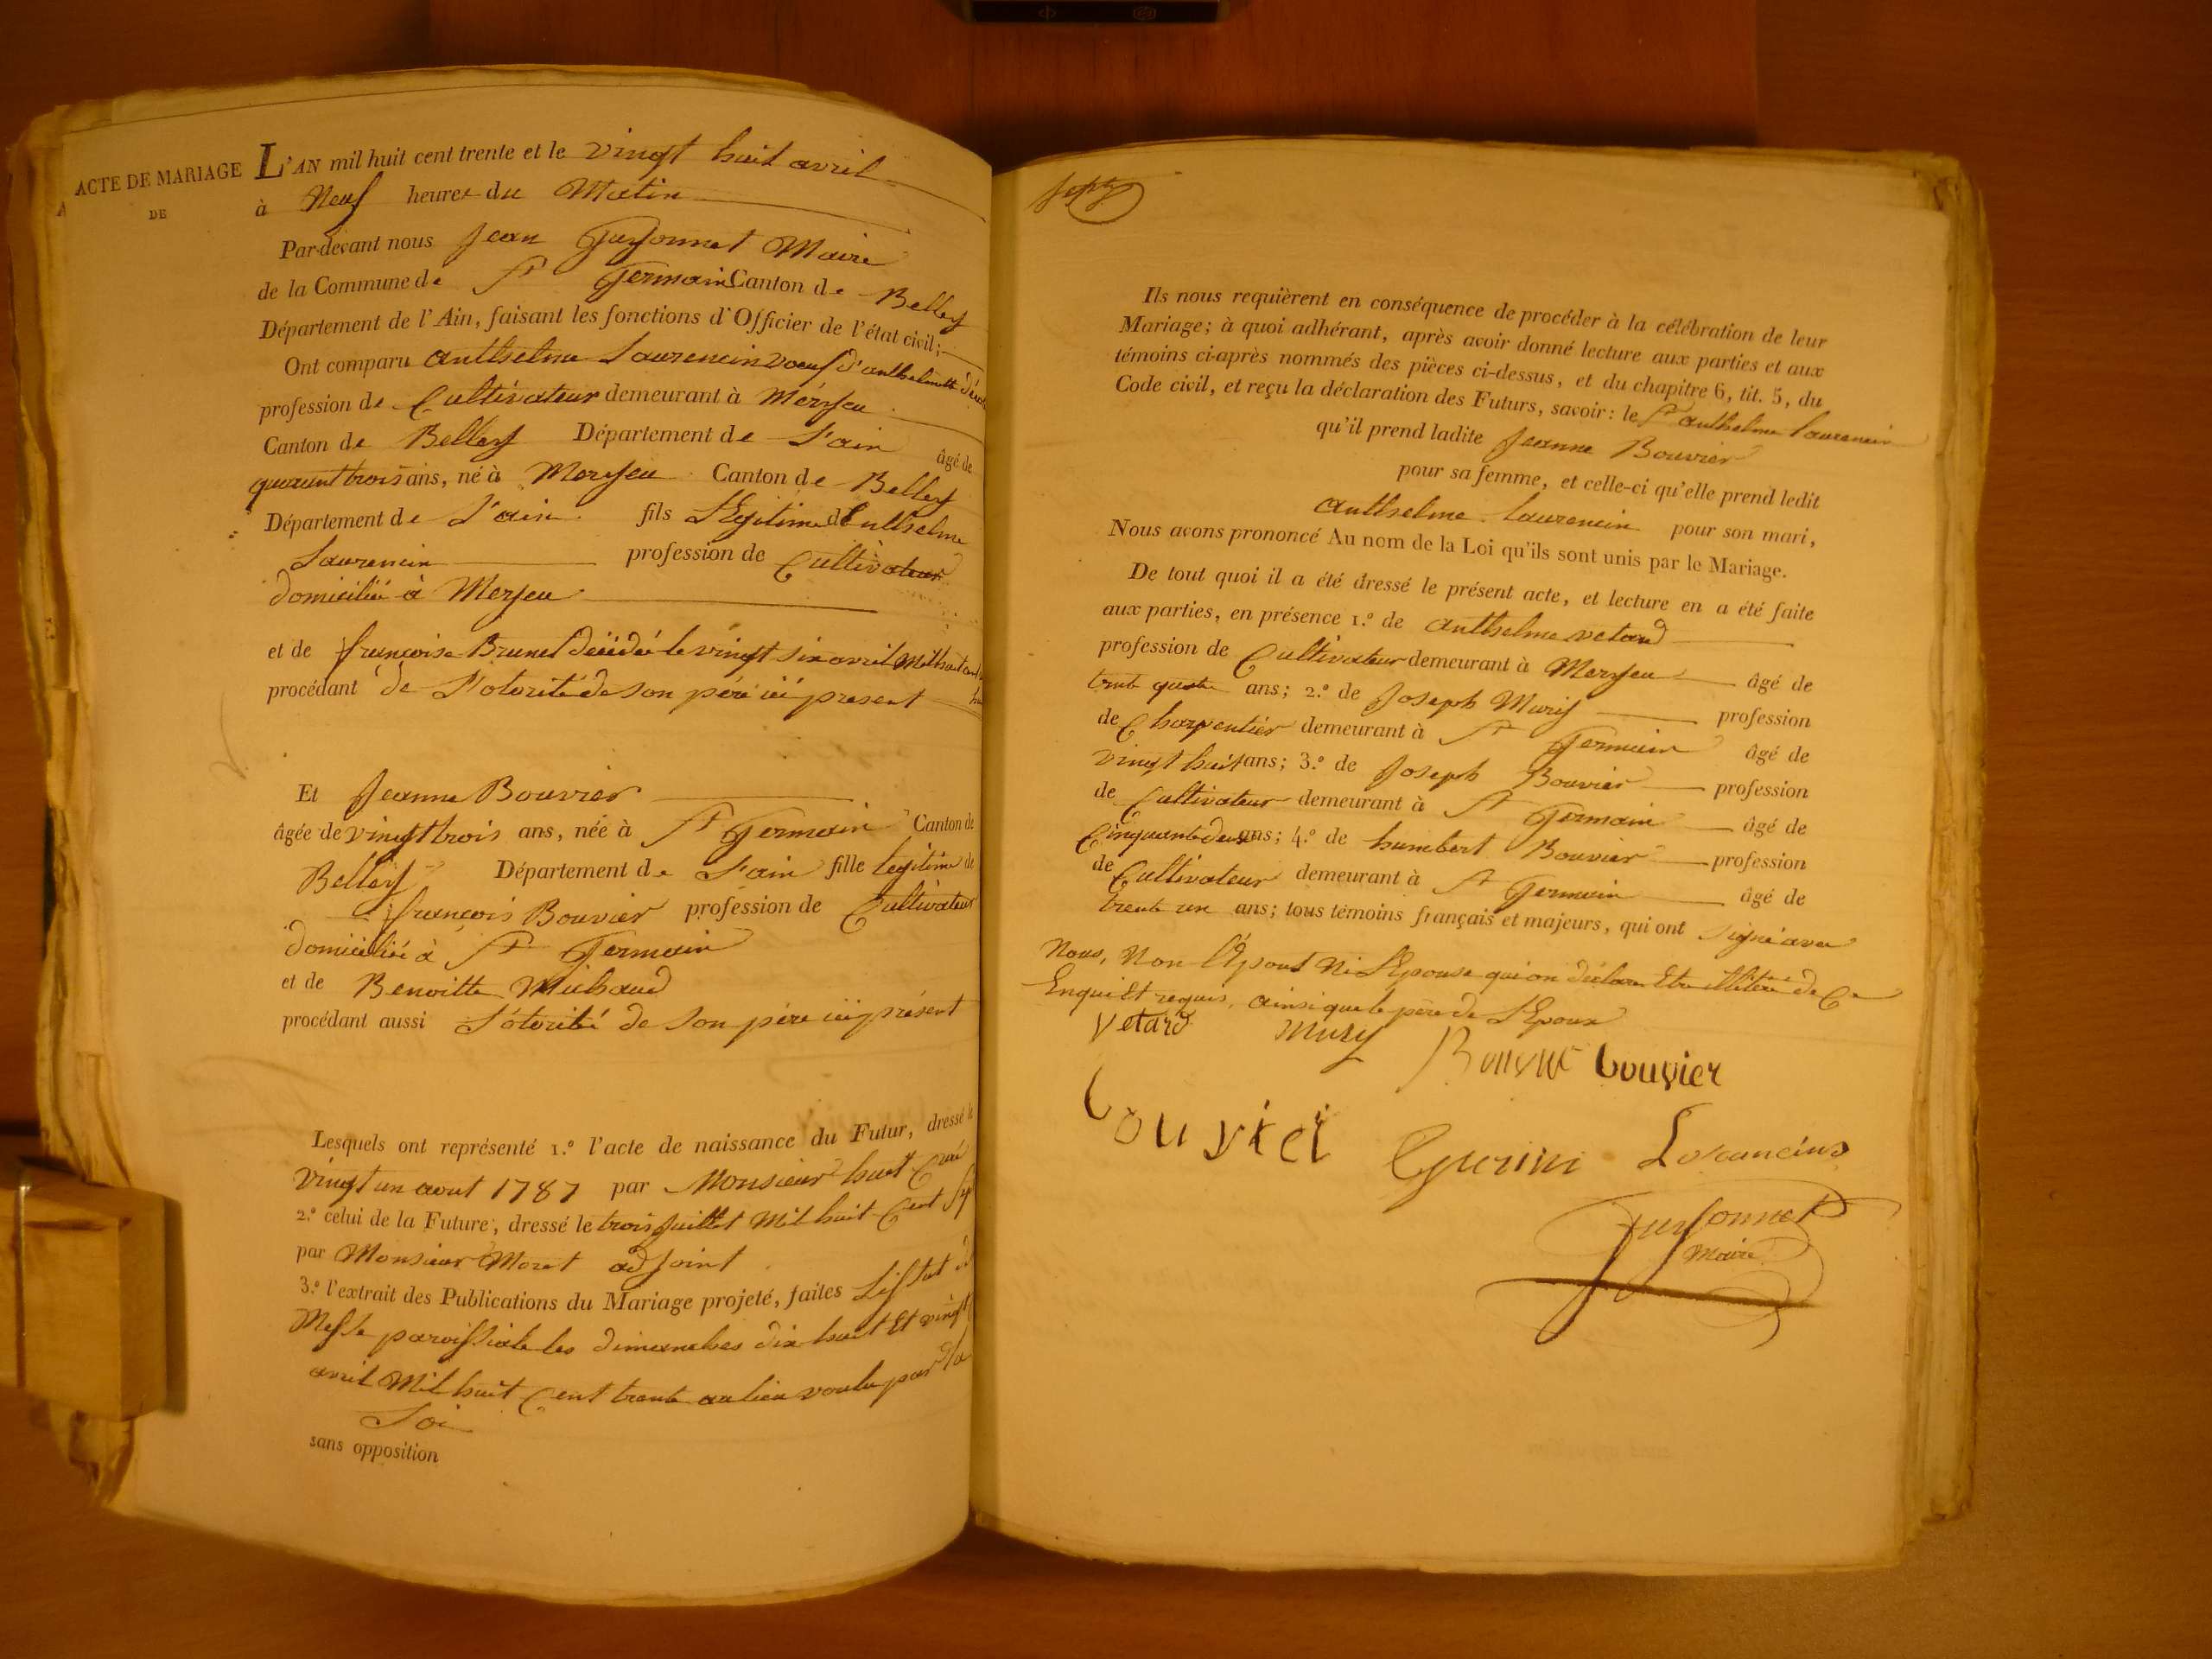 ACTE DE MARIAGE
DE
L'AN mil huit cent trente et le vingt huit avril
à Neuf heures du Matin
Par-devant nous Jean Maire
de la Commune de St Germain Canton de Belley
Département de l'Ain, faisant les fonctions d'Officier de l'état civil;
Ont comparu anthelme Laurencin voeuf d'anthelmette
profession de Cultivateur demeurant à Meryeu
Canton de Belley Département de L'ain âgé de
quarant trois ans, né à Meryeu Canton de Belley
Département de L'ain fils Légitime d'anthelme
Laurencin profession de Cultivateur
domicilié à Meryeu
et de françoise Brunet décédé le vingt six avril Mil huit cent
procédant de L'otorité de son père ici present
Et Jeanne Bouvier
âgée de vingt trois ans, née à St Germain Canton de
Belley Département de L'ain fille legitime de
françois Bouvier profession de Cultivateur
domicilié à St Germain
et de Benoitte Michaud
procédant aussi L'otorité de son père ici présent
Lesquels ont représenté 1.º l'acte de naissance du Futur, dressé le
vingt un aout 1787 par Monsieur huet Curé
2.º celui de la Future, dressé le trois Juillet Mil huit Cent
par Monsieur Moret adjoint
3.º l'extrait des Publications du Mariage projeté, faites
Messe paroissiale les dimanches dix huit Et vingt
avril Mil huit Cent trente au lieu voulu par la
Loi
sans opposition
Ils nous requièrent en conséquence de procéder à la célébration de leur
Mariage; à quoi adhérant, après avoir donné lecture aux parties et aux
témoins ci-après nommés des pièces ci-dessus, et du chapitre 6, tit. 5, du
Code civil, et reçu la déclaration des Futurs, savoir: le Sr anthelme laurencin
qu'il prend ladite Jeanne Bouvier
pour sa femme, et celle-ci qu'elle prend ledit
anthelme laurencin pour son mari,
Nous avons prononcé Au nom de la Loi qu'ils sont unis par le Mariage.
De tout quoi il a été dressé le présent acte, et lecture en a été faite
aux parties, en présence 1.º de anthelme vetard
profession de Cultivateur demeurant à Meryeu âgé de
trent quatre ans; 2.º de Joseph Mury profession
de Charpentier demeurant à St Germain âgé de
vingt huit ans; 3.º de Joseph Bouvier profession
de Cultivateur demeurant à St Germain âgé de
Cinquante deux ans; 4.º de humbert Bouvier profession
de Cultivateur demeurant à St Germain âgé de
trente un ans; tous témoins français et majeurs, qui ont signé avec
Nous, Non l'Epoux Ni L'Epouse qui on déclaré Etre illitéré de Ce
Enquit Et requis, ainsi que le père de L'Epoux
Vetard Mury Bouvier bouvier
bouvier Guerin
Maire